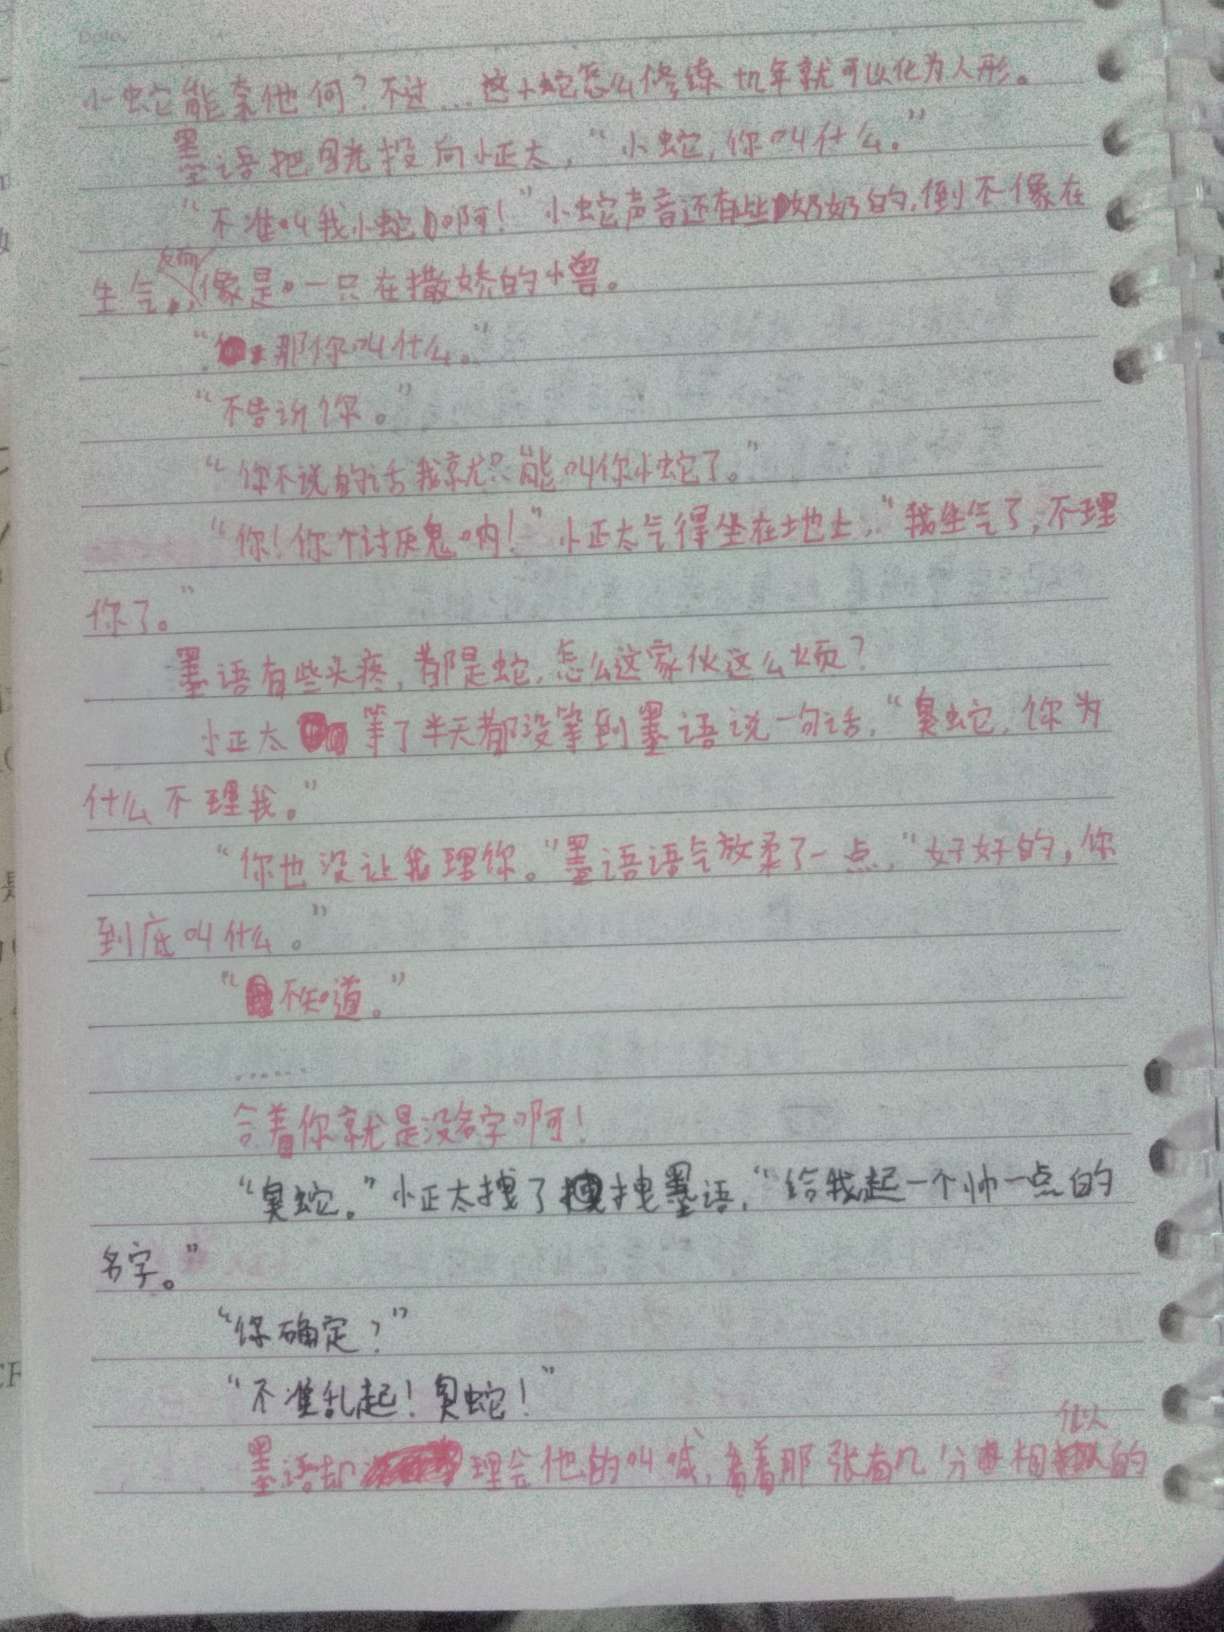 小蛇能拿他何？不过...这小蛇怎么修练几年就可以化为人形。
墨语把目光投向小正太，“小蛇，你叫什么。”
“不准叫我小蛇啊！”小蛇声音还有些奶奶的，倒不像在
反而
生气。，像是一只在撒娇的小兽。
“那你叫什么。”
“不告诉你。”
“你不说的话我就只能叫你小蛇了。”
“你！你个讨厌鬼呐！”小正太气得坐在土地上，“我生气了，不理
你了。”
墨语有些头疼，都是蛇，怎么这家伙这么烦？
小正太等了半天都没等到墨语说一句话，“臭蛇，你为
什么不理我。”
“你也没让我理你。”墨语语气放柔了一点，“好好的，你
到底叫什么。”
“不知道。”
......
合着你就是没名字啊！
“臭蛇。”小正太拽了拽墨语，“给我起一个帅一点的
名字。”
“你确定？”
“不准乱起！臭蛇！”
似
墨语却理会他的叫喊，看着那张有几分相的